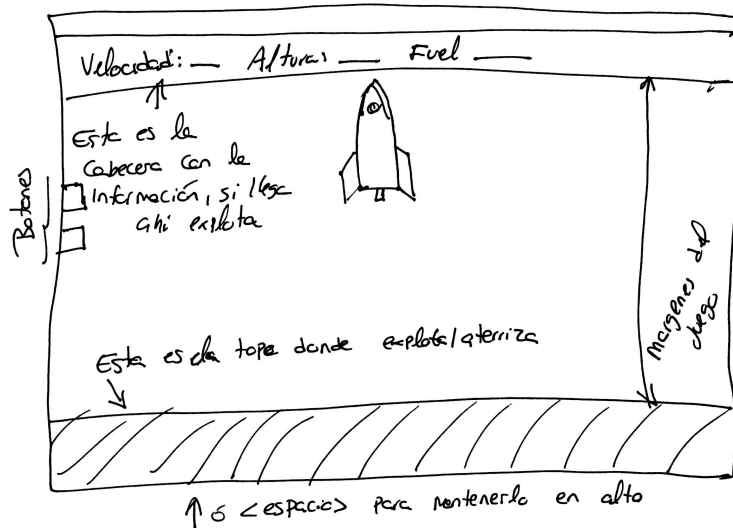 Velocidad: __ Alturas __ Fuel __
Esta es la
cabecera con la
Información, si llega
ahi explota
Botones
Margenes del
Juego
Esta es la tope donde explota/aterriza
↑ ó <espacio> para mantenerlo en alto